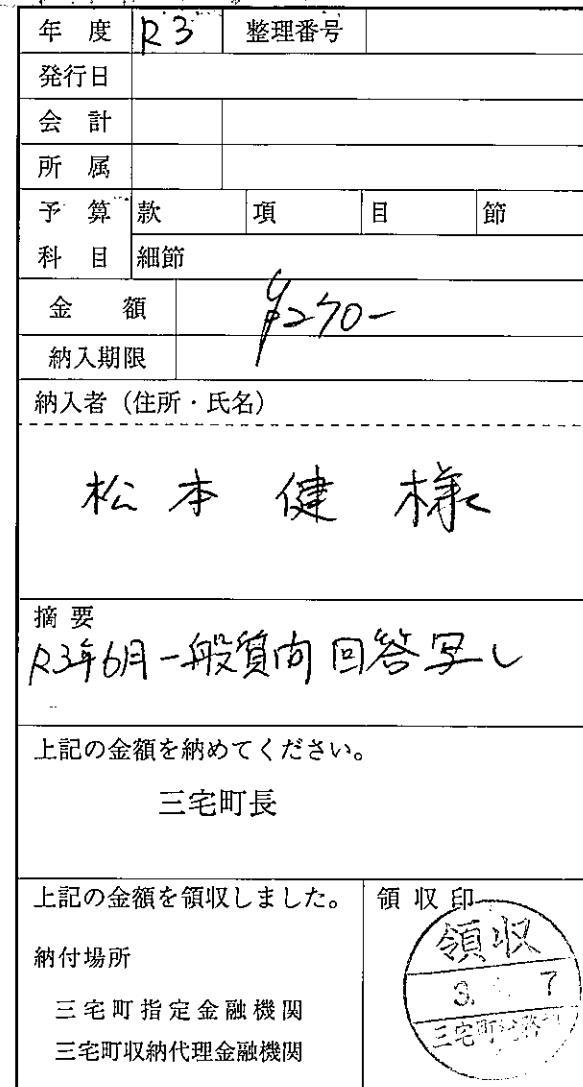 年度 R3 整理番号
発行日
会計
所属
予算 款 項 目 節
科目 細節
金額 ¥270-
納入期限
納入者（住所・氏名）
松本 健 様
摘要
R3年6月一般質問回答写し
上記の金額を納めてください。
三宅町長
上記の金額を領収しました。 領収印
納付場所
三宅町指定金融機関
三宅町収納代理金融機関
領収
3. 7
三宅町